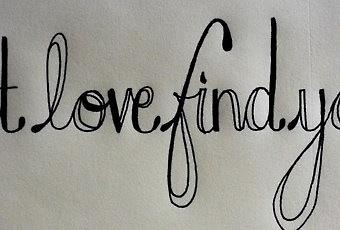 t love find yo